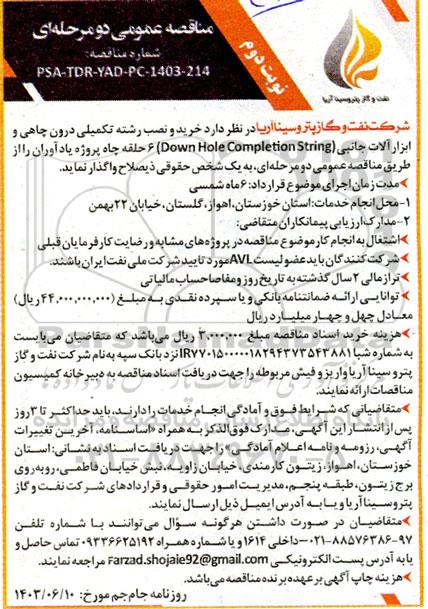 مناقصه عمومی دو مرحله‌ای
شماره مناقصه:
PSA-TDR-YAD-PC-1403-214
نوبت دوم
نفت و گاز پتروسینا آریا
شرکت نفت و گاز پتروسینا آریا در نظر دارد خرید و نصب رشته تکمیلی درون چاهی و
ابزار آلات جانبی (Down Hole Completion String) ۶ حلقه چاه پروژه یادآوران را از
طریق مناقصه عمومی دو مرحله‌ای، به یک شخص حقوقی ذیصلاح واگذار نماید.
♦مدت زمان اجرای موضوع قرارداد: ۶ ماه شمسی
۱-محل انجام خدمات: استان خوزستان، اهواز، گلستان، خیابان ۲۲ بهمن
۲-مدارک ارزیابی پیمانکاران متقاضی:
♦اشتغال به انجام کار موضوع مناقصه در پروژه‌های مشابه و رضایت کارفرمایان قبلی
♦شرکت کنندگان باید عضو لیست AVL مورد تایید شرکت ملی نفت ایران باشند.
♦ترازمالی ۲ سال گذشته به تاریخ روز و مفاصاحساب مالیاتی
♦توانایی ارائه ضمانتنامه بانکی و یا سپرده نقدی به مبلغ (۴۴,۰۰۰,۰۰۰,۰۰۰ ریال)
معادل چهل و چهار میلیارد ریال
♦هزینه خرید اسناد مناقصه مبلغ ۳,۰۰۰,۰۰۰ ریال می‌باشد که متقاضیان می‌بایست
به شماره شبا IR۷۷۰۱۵۰۰۰۰۰۱۸۲۹۴۳۷۳۵۴۳۸۸۱ نزد بانک سپه به نام شرکت نفت و گاز
پترو سینا آریا واریز و فیش مربوطه را جهت دریافت اسناد مناقصه به دبیرخانه کمیسیون
مناقصات ارائه نمایند.
♦متقاضیانی که شرایط فوق و آمادگی انجام خدمات را دارند، باید حداکثر تا ۳ روز
پس از انتشار این آگهی، مدارک فوق الذکر به همراه «اساسنامه، آخرین تغییرات
آگهی، رزومه و نامه اعلام آمادگی» را جهت دریافت اسناد به نشانی: استان
خوزستان، اهواز، زیتون کارمندی، خیابان زاویه، نبش خیابان فاطمی، روبه‌روی
برج زیتون، طبقه پنجم، مدیریت امور حقوقی و قراردادهای شرکت نفت و گاز
پتروسینا آریا و یا به آدرس ایمیل ذیل ارسال نمایند.
♦متقاضیان در صورت داشتن هرگونه سؤال می‌توانند با شماره تلفن
۰۲۱-۸۸۵۷۶۳۸۶-۹۷ داخلی ۱۶۱۴ و یا شماره همراه ۰۹۳۳۶۶۲۵۱۹۲ تماس حاصل و
یا به آدرس پست الکترونیکی Farzad.shojaie92@gmail.com مراجعه نمایند.
♦هزینه چاپ آگهی بر عهده برنده مناقصه می‌باشد.
روزنامه جام جم مورخ: ۱۴۰۳/۰۶/۱۰